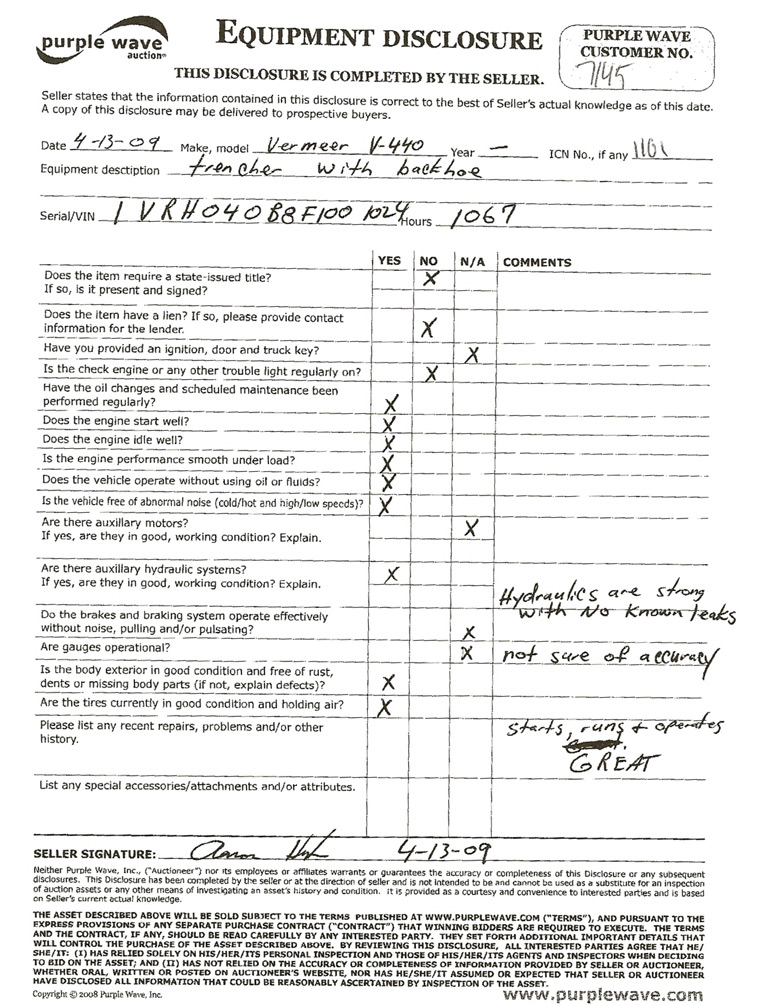 purple wave
auction®
EQUIPMENT DISCLOSURE
PURPLE WAVE
CUSTOMER NO.
7145
THIS DISCLOSURE IS COMPLETED BY THE SELLER.
Seller states that the information contained in this disclosure is correct to the best of Seller's actual knowledge as of this date.
A copy of this disclosure may be delivered to prospective buyers.
Date 4-13-09 Make, model Vermeer V-440 Year — ICN No., if any 1101
Equipment desctiption trencher with backhoe
Serial/VIN 1VRH040B8F100 1024 Hours 1067
YES NO N/A COMMENTS
Does the item require a state-issued title? X
If so, is it present and signed?
Does the item have a lien? If so, please provide contact
information for the lender. X
Have you provided an ignition, door and truck key? X
Is the check engine or any other trouble light regularly on? X
Have the oil changes and scheduled maintenance been
performed regularly? X
Does the engine start well? X
Does the engine idle well? X
Is the engine performance smooth under load? X
Does the vehicle operate without using oil or fluids? X
Is the vehicle free of abnormal noise (cold/hot and high/low speeds)? X
Are there auxillary motors? X
If yes, are they in good, working condition? Explain.
Are there auxillary hydraulic systems? X
If yes, are they in good, working condition? Explain.
Hydraulics are strong
with No Known leaks
Do the brakes and braking system operate effectively
without noise, pulling and/or pulsating? X
Are gauges operational? X not sure of accuracy
Is the body exterior in good condition and free of rust,
dents or missing body parts (if not, explain defects)? X
Are the tires currently in good condition and holding air? X
Please list any recent repairs, problems and/or other
history.
starts, runs + operates
GREAT
List any special accessories/attachments and/or attributes.
SELLER SIGNATURE: Aaron 4-13-09
Neither Purple Wave, Inc., ("Auctioneer") nor its employees or affiliates warrants or guarantees the accuracy or completeness of this Disclosure or any subsequent
disclosures. This Disclosure has been completed by the seller or at the direction of seller and is not intended to be and cannot be used as a substitute for an inspection
of auction assets or any other means of investigating an asset's history and condition. It is provided as a courtesy and convenience to interested parties and is based
on Seller's current actual knowledge.
THE ASSET DESCRIBED ABOVE WILL BE SOLD SUBJECT TO THE TERMS PUBLISHED AT WWW.PURPLEWAVE.COM ("TERMS"), AND PURSUANT TO THE
EXPRESS PROVISIONS OF ANY SEPARATE PURCHASE CONTRACT ("CONTRACT") THAT WINNING BIDDERS ARE REQUIRED TO EXECUTE. THE TERMS
AND THE CONTRACT, IF ANY, SHOULD BE READ CAREFULLY BY ANY INTERESTED PARTY. THEY SET FORTH ADDITIONAL IMPORTANT DETAILS THAT
WILL CONTROL THE PURCHASE OF THE ASSET DESCRIBED ABOVE. BY REVIEWING THIS DISCLOSURE, ALL INTERESTED PARTIES AGREE THAT HE/
SHE/IT: (I) HAS RELIED SOLELY ON HIS/HER/ITS PERSONAL INSPECTION AND THOSE OF HIS/HER/ITS AGENTS AND INSPECTORS WHEN DECIDING
TO BID ON THE ASSET; AND (II) HAS NOT RELIED ON THE ACCURACY OR COMPLETENESS OF INFORMATION PROVIDED BY SELLER OR AUCTIONEER,
WHETHER ORAL, WRITTEN OR POSTED ON AUCTIONEER'S WEBSITE, NOR HAS HE/SHE/IT ASSUMED OR EXPECTED THAT SELLER OR AUCTIONEER
HAVE DISCLOSED ALL INFORMATION THAT COULD BE REASONABLY ASCERTAINED BY INSPECTION OF THE ASSET.
Copyright © 2008 Purple Wave, Inc.
www.purplewave.com